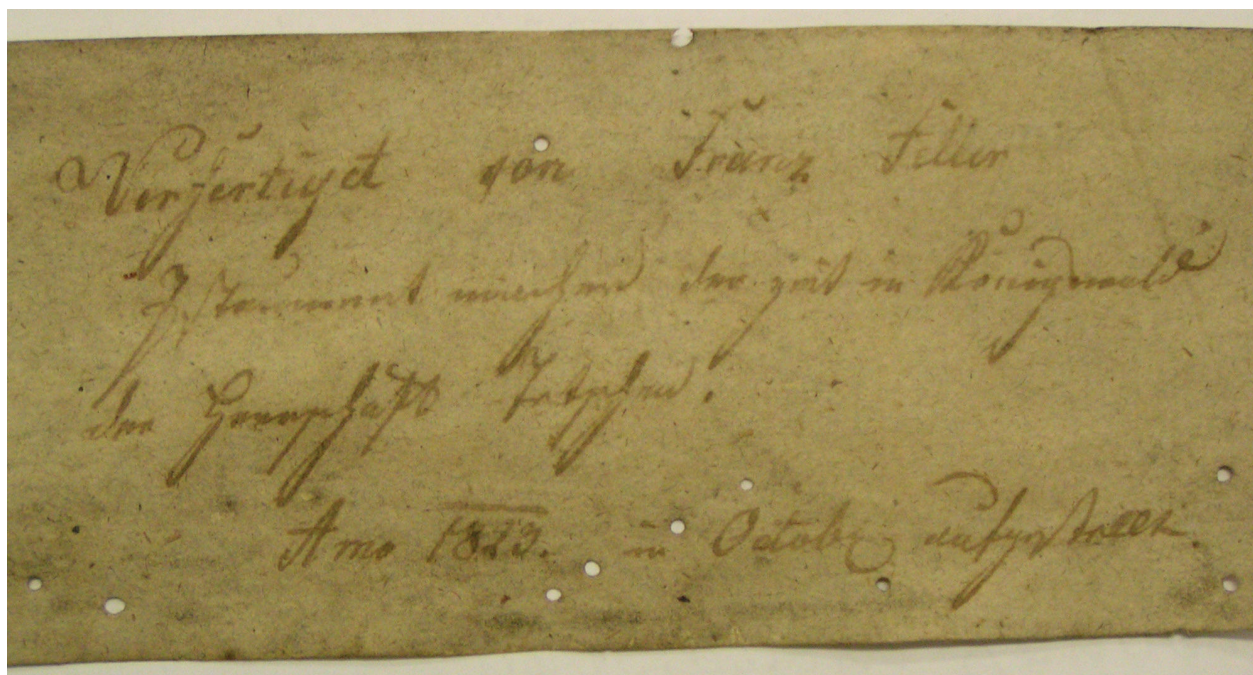 Verfertiget von Franz Feller
Jstarument macher der zeit in Königswald
der Herrschaft Tetschen.
Anno 1829. in October aufgestellt.